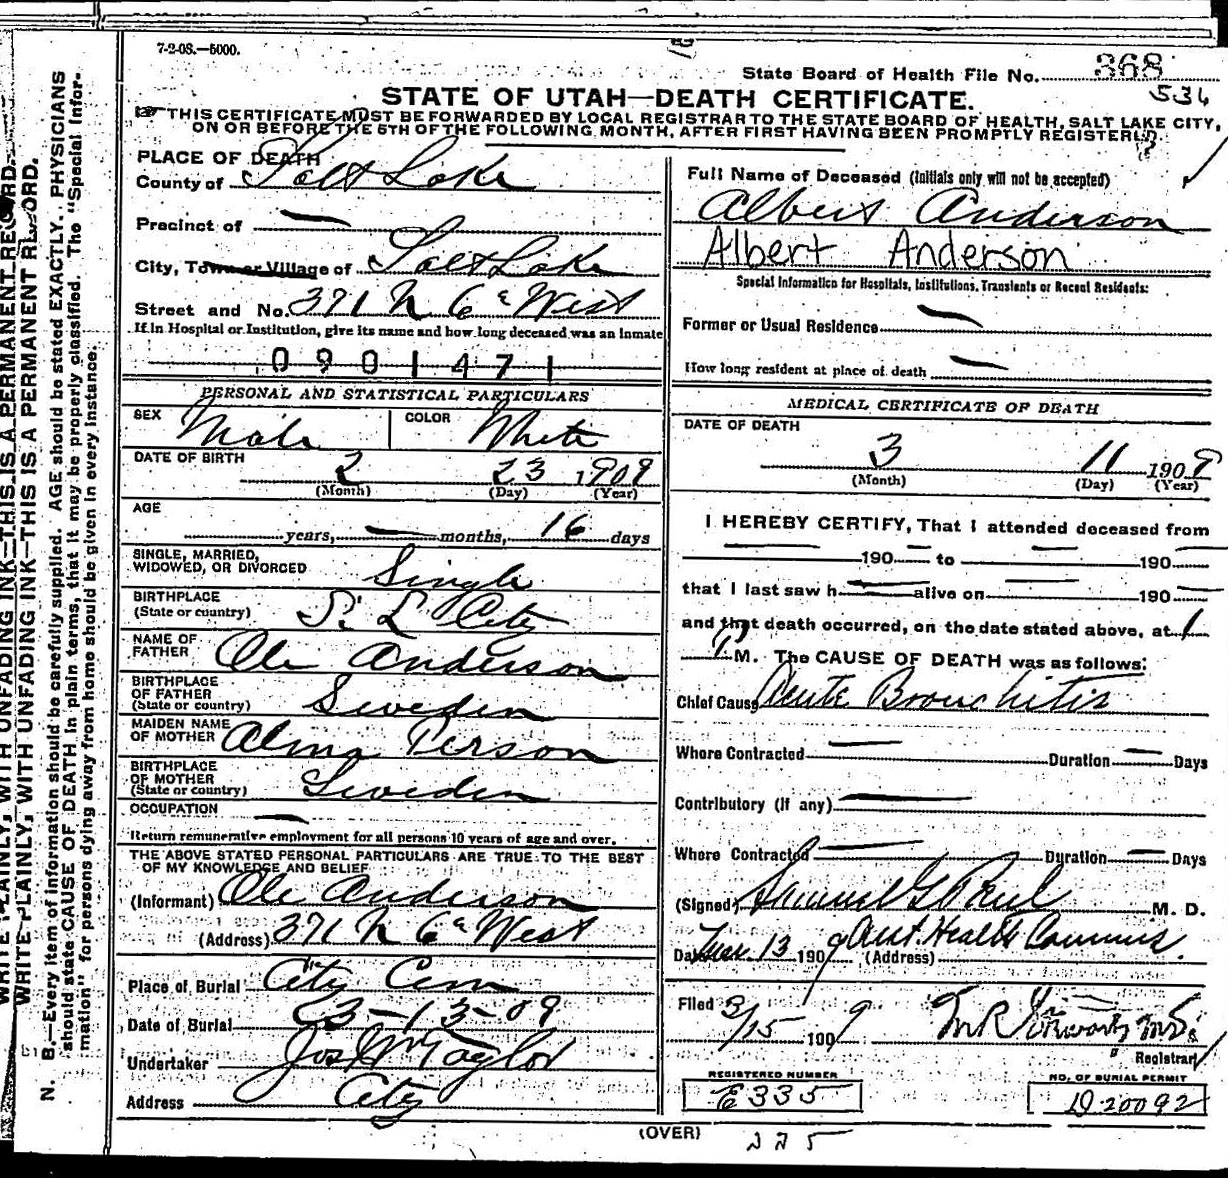 7-2-08.—5000.
State Board of Health File No. 368
534
STATE OF UTAH—DEATH CERTIFICATE.
THIS CERTIFICATE MUST BE FORWARDED BY LOCAL REGISTRAR TO THE STATE BOARD OF HEALTH, SALT LAKE CITY,
ON OR BEFORE THE 5TH OF THE FOLLOWING MONTH, AFTER FIRST HAVING BEEN PROMPTLY REGISTERED.
PLACE OF DEATH
County of Salt Lake
Precinct of —
City, Town or Village of Salt Lake
Street and No. 371 N 6th West
If in Hospital or Institution, give its name and how long deceased was an inmate
0901471
PERSONAL AND STATISTICAL PARTICULARS
SEX Male COLOR White
DATE OF BIRTH
2 23 1909
(Month) (Day) (Year)
AGE
years, — months, 16 days
SINGLE, MARRIED,
WIDOWED, OR DIVORCED Single
BIRTHPLACE
(State or country) S. L. City
NAME OF
FATHER Ole Anderson
BIRTHPLACE
OF FATHER
(State or country) Sweden
MAIDEN NAME
OF MOTHER Alma Person
BIRTHPLACE
OF MOTHER
(State or country) Sweden
OCCUPATION —
Return remunerative employment for all persons 10 years of age and over.
THE ABOVE STATED PERSONAL PARTICULARS ARE TRUE TO THE BEST
OF MY KNOWLEDGE AND BELIEF
(Informant) Ole Anderson
(Address) 371 N 6th West
Place of Burial City Cem
Date of Burial 3-13-09
Undertaker Jos Wm Taylor
Address City
Full Name of Deceased (Initials only will not be accepted)
Albert Anderson
Albert Anderson
Special Information for Hospitals, Institutions, Transients or Recent Residents:
Former or Usual Residence —
How long resident at place of death —
MEDICAL CERTIFICATE OF DEATH
DATE OF DEATH
3 11 1909
(Month) (Day) (Year)
I HEREBY CERTIFY, That I attended deceased from
— 190 — to — 190 —
that I last saw h — alive on — 190 —
and that death occurred, on the date stated above, at 1
P M. The CAUSE OF DEATH was as follows:
Chief Cause Acute Bronchitis
Where Contracted — Duration — Days
Contributory (if any) —
Where Contracted — Duration — Days
(Signed) Samuel G Paul M. D.
Date Mar. 13 1909 (Address) Asst. Health Commis.
Filed 3/15 1909
Registrar
REGISTERED NUMBER
E335
NO. OF BURIAL PERMIT
D20092
(OVER)
225
WRITE PLAINLY, WITH UNFADING INK—THIS IS A PERMANENT RECORD.
WRITE PLAINLY, WITH UNFADING INK—THIS IS A PERMANENT RECORD.
N. B.—Every item of information should be carefully supplied. AGE should be stated EXACTLY. PHYSICIANS
should state CAUSE OF DEATH in plain terms, that it may be properly classified. The "Special Infor-
mation" for persons dying away from home should be given in every instance.